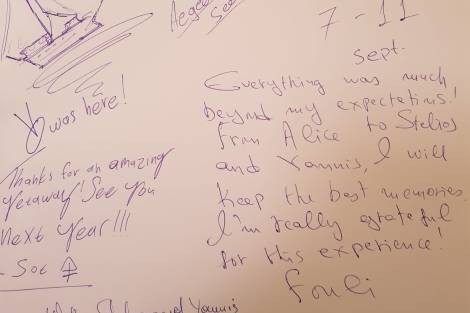 Aegea
See
was here!
Thanks for an amazing
getaway! See you
next year!!!
- Soc
7 - 11
sept.
Everything was much
beyond my expectations!
From Alice to Stelios
and Yannis, I will
keep the best memories.
I'm really grateful
for this experience!
Fouli
and Yannis